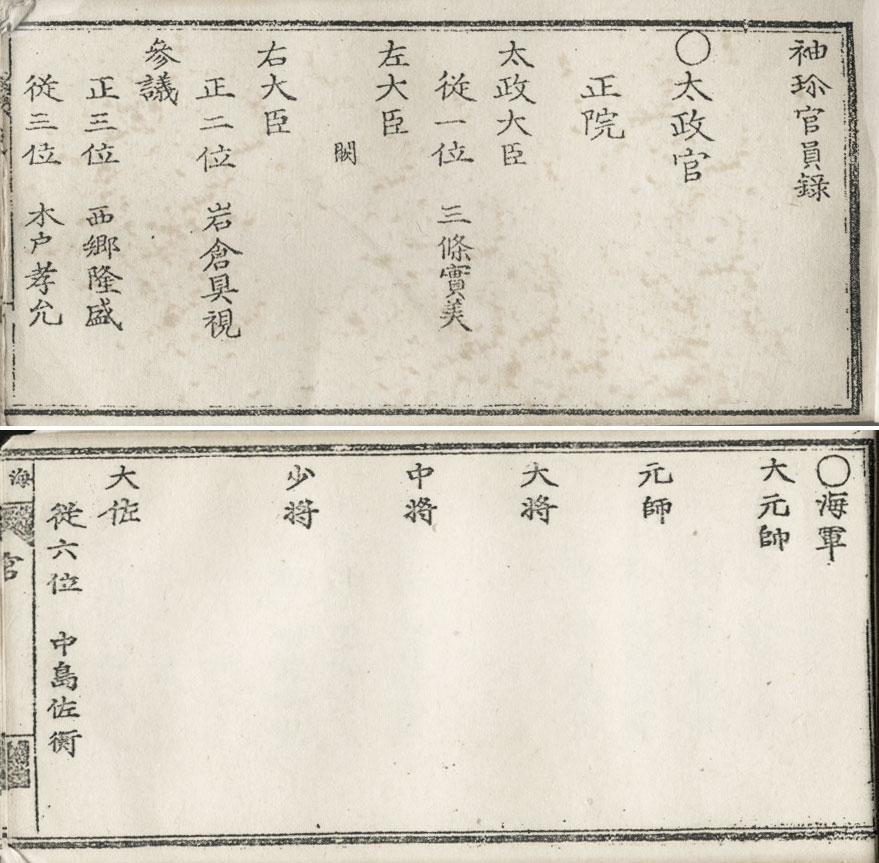 袖珍官員録
〇太政官
正院
太政大臣
従一位 三條實美
左大臣
闕
右大臣
正二位 岩倉具視
參議
正三位 西郷隆盛
従三位 木戸孝允
〇海軍
大元帥
元帥
大将
中将
少将
大佐
従六位 中島佐衡
海
官